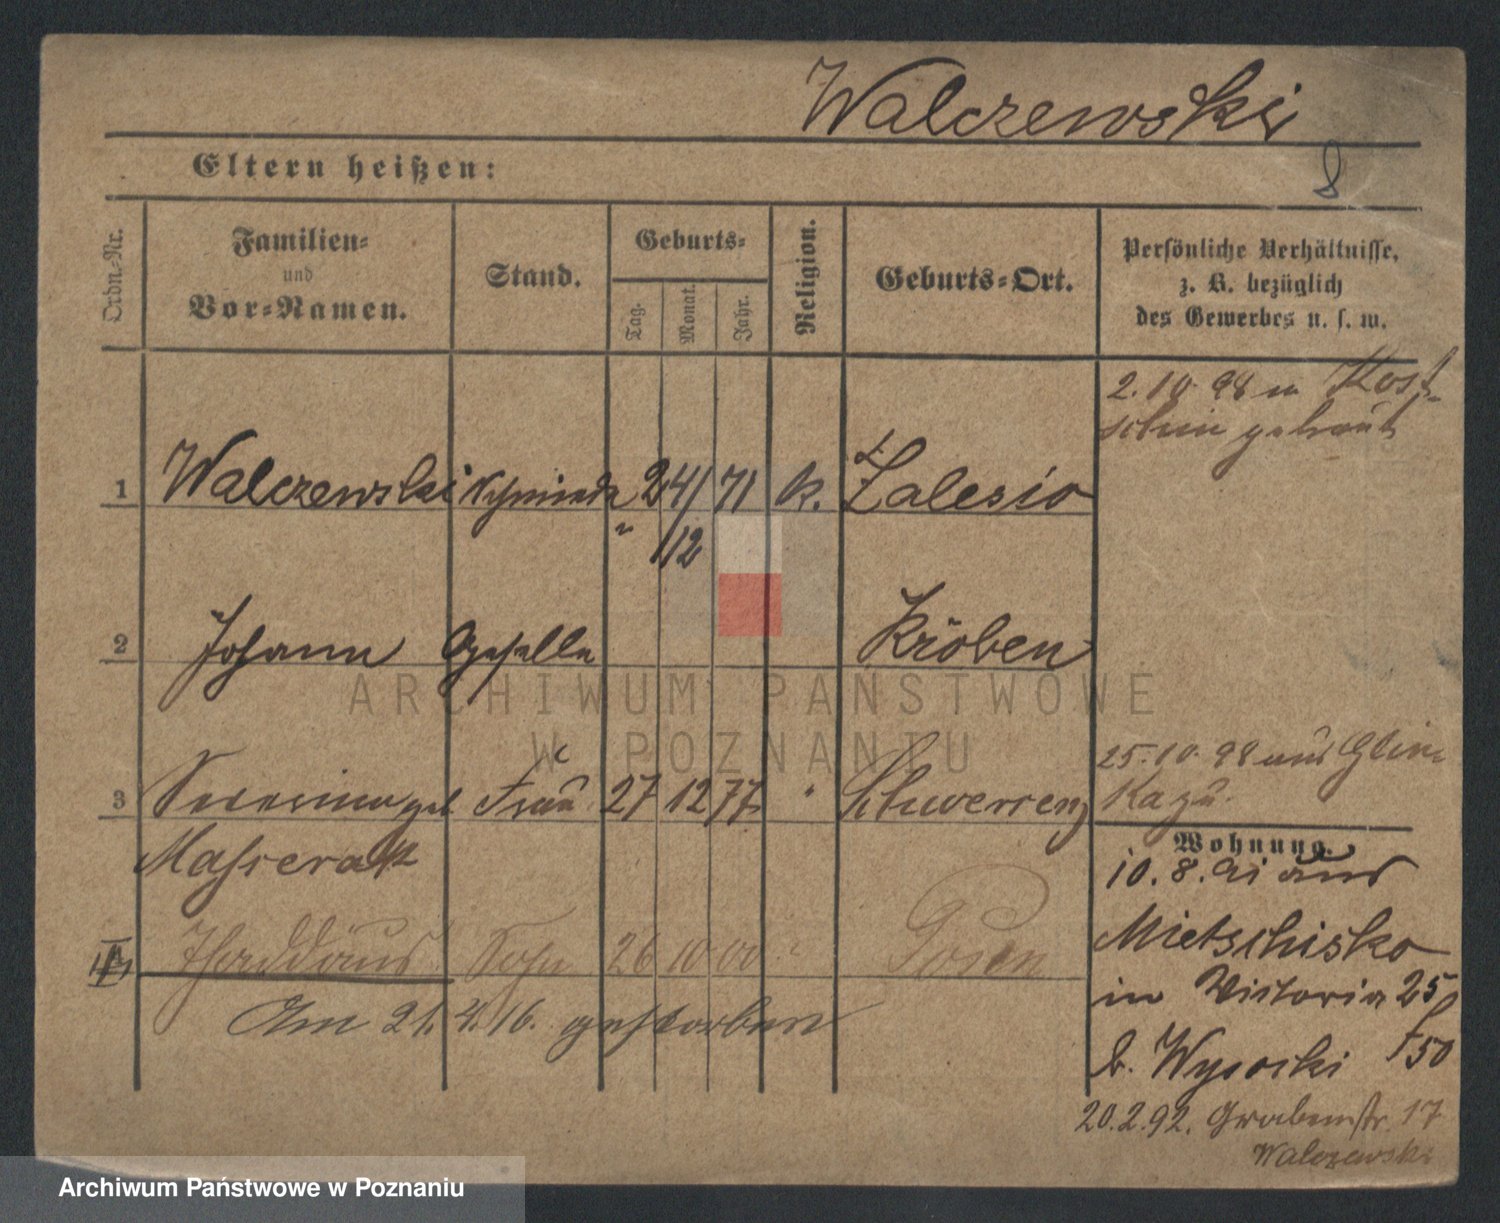 Walczewski
8
Eltern heißen:
Ordn.-Nr.
Familien-
und
Vor-Namen.
Stand.
Geburts-
Tag.
Monat.
Jahr.
Religion.
Geburts-Ort.
Persönliche Verhältnisse,
z. B. bezüglich
des Gewerbes u. s. w.
2.10.98 in Kost-
schin getraut
1 Walczewski Schmiede 24/ 71 k. Zalesio
12
2 Johann Geselle Kröben
3 geb Frau 27 12 77 Schwersenz
25.10.98 aus
Wohnung.
10.8.91 aus
Mietschisko
in Victoria 25
b. Wysocki
Thaddäus Sohn 26 10 00 Posen
Am 21.4.16. gestorben
20.2.92. Grabenstr. 17
Walczewski
ARCHIWUM PAŃSTWOWE
W POZNANIU
Archiwum Państwowe w Poznaniu